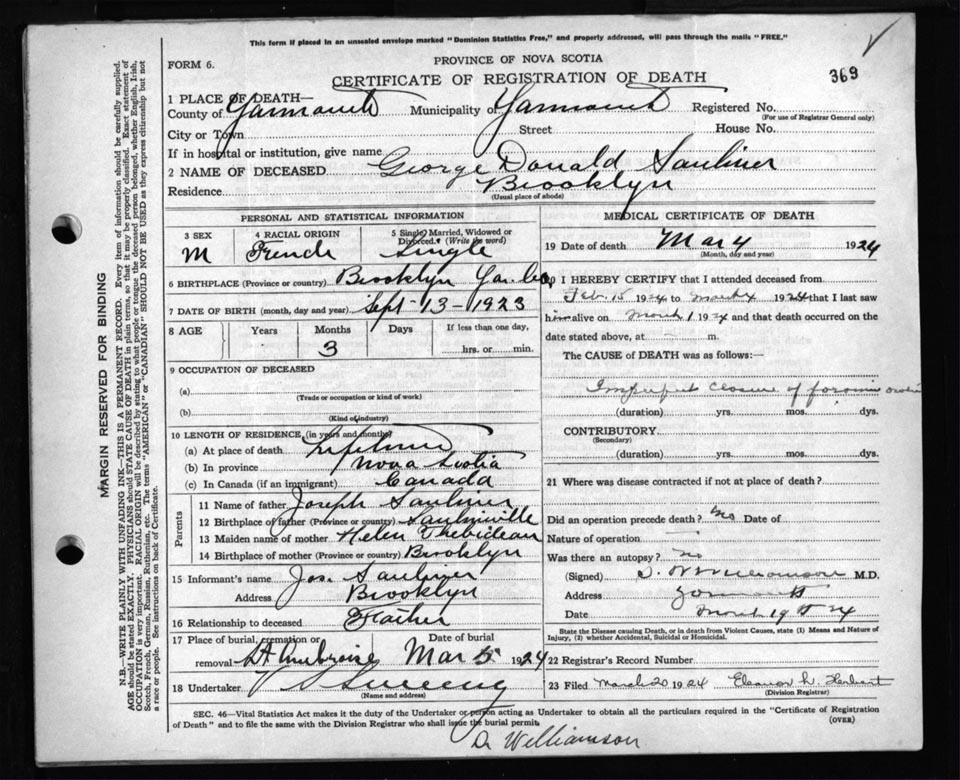 This form if placed in an unsealed envelope marked "Dominion Statistics Free," and properly addressed, will pass through the mails "FREE."
FORM 6.
PROVINCE OF NOVA SCOTIA
CERTIFICATE OF REGISTRATION OF DEATH
369
1 PLACE OF DEATH—
County of Yarmouth Municipality of Yarmouth Registered No.
(For use of Registrar General only)
City or Town Street House No.
If in hospital or institution, give name
2 NAME OF DECEASED George Donald Saulnier
Residence Brooklyn
(Usual place of abode)
PERSONAL AND STATISTICAL INFORMATION
3 SEX 4 RACIAL ORIGIN 5 Single, Married, Widowed or Divorced. (Write the word)
M French Single
6 BIRTHPLACE (Province or country) Brooklyn Yar. Co
7 DATE OF BIRTH (month, day and year) Sept-13-1923
8 AGE Years Months Days If less than one day,
3 hrs. or min.
9 OCCUPATION OF DECEASED
(a)
(Trade or occupation or kind of work)
(b)
(Kind of industry)
10 LENGTH OF RESIDENCE (in years and months)
(a) At place of death Lifetime
(b) In province Nova Scotia
(c) In Canada (if an immigrant) Canada
Parents
11 Name of father Joseph Saulnier
12 Birthplace of father (Province or country) Saulnierville
13 Maiden name of mother Helen Thebideau
14 Birthplace of mother (Province or country) Brooklyn
15 Informant's name Jos. Saulnier
Address Brooklyn
16 Relationship to deceased Father
17 Place of burial, cremation or Date of burial
removal St Ambroise Mar 5 1924
18 Undertaker V S Sweeny
(Name and address)
MEDICAL CERTIFICATE OF DEATH
19 Date of death Mar 4 1924
(Month, day and year)
20 I HEREBY CERTIFY that I attended deceased from
Feb. 15 1924 to March 4 1924 that I last saw
him alive on March 1 1924 and that death occurred on the
date stated above, at m.
The CAUSE of DEATH was as follows:
Imperfect closure of foramin ovale
(duration) yrs. mos. dys.
CONTRIBUTORY
(Secondary)
(duration) yrs. mos. dys.
21 Where was disease contracted if not at place of death?
Did an operation precede death? No Date of
Nature of operation
Was there an autopsy? no
(Signed) Williamson M.D.
Address Yarmouth
Date March 19th 24
State the Disease causing Death, or in death from Violent Causes, state (1) Means and Nature of Injury, (2) whether Accidental, Suicidal or Homicidal.
22 Registrar's Record Number
23 Filed March 20 1924 Eleanor L. Herbert
(Division Registrar)
SEC. 46—Vital Statistics Act makes it the duty of the Undertaker or person acting as Undertaker to obtain all the particulars required in the "Certificate of Registration
of Death" and to file the same with the Division Registrar who shall issue the burial permit.
(OVER)
Dr Williamson
MARGIN RESERVED FOR BINDING
N.B.—WRITE PLAINLY WITH UNFADING INK—THIS IS A PERMANENT RECORD. Every item of information should be carefully supplied.
AGE should be stated EXACTLY. PHYSICIANS should STATE CAUSE OF DEATH in plain terms, so that it may be properly classified. Exact statement of
OCCUPATION is very important. RACIAL ORIGIN will be described by stating to what people or tongue the deceased person belonged, whether English, Irish,
Scotch, French, German, Russian, Ruthenian, etc. The terms "AMERICAN" or "CANADIAN" SHOULD NOT BE USED as they express citizenship but not
a race or people. See instructions on back of Certificate.